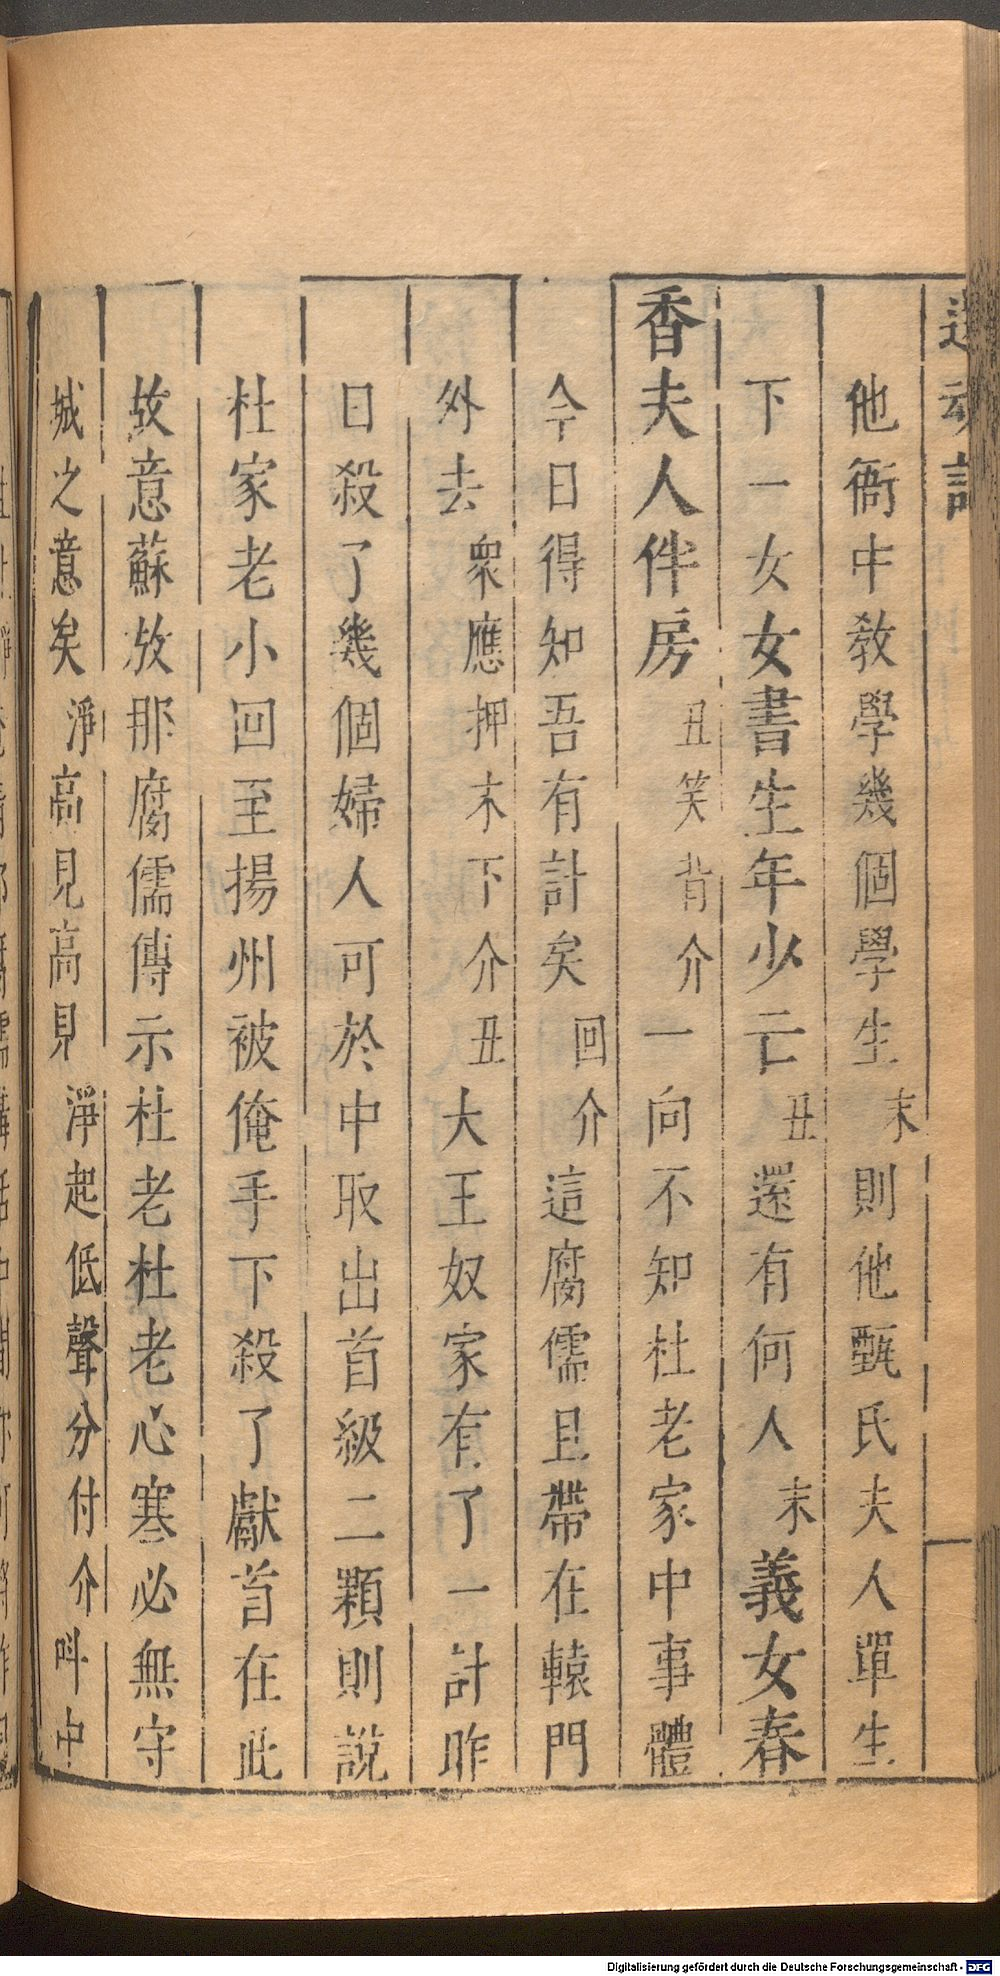 還魂記
他衙中教學幾個學生末則他甄氏夫人單生
下一女女書生年少亡丑還有何人末義女春
香夫人伴房丑笑背介一向不知杜老家中事體
今日得知吾有計矣回介這腐儒且帶在轅門
外去衆應押末下介丑大王奴家有了一計昨
日殺了幾個婦人可於中取出首級二顆則說
杜家老小回至揚州被俺手下殺了獻首在此
故意蘇放那腐儒傳示杜老杜老心寒必無守
城之意矣淨高見高見淨起低聲分付介叫中
Digitalisierung gefördert durch die Deutsche Forschungsgemeinschaft - DFG